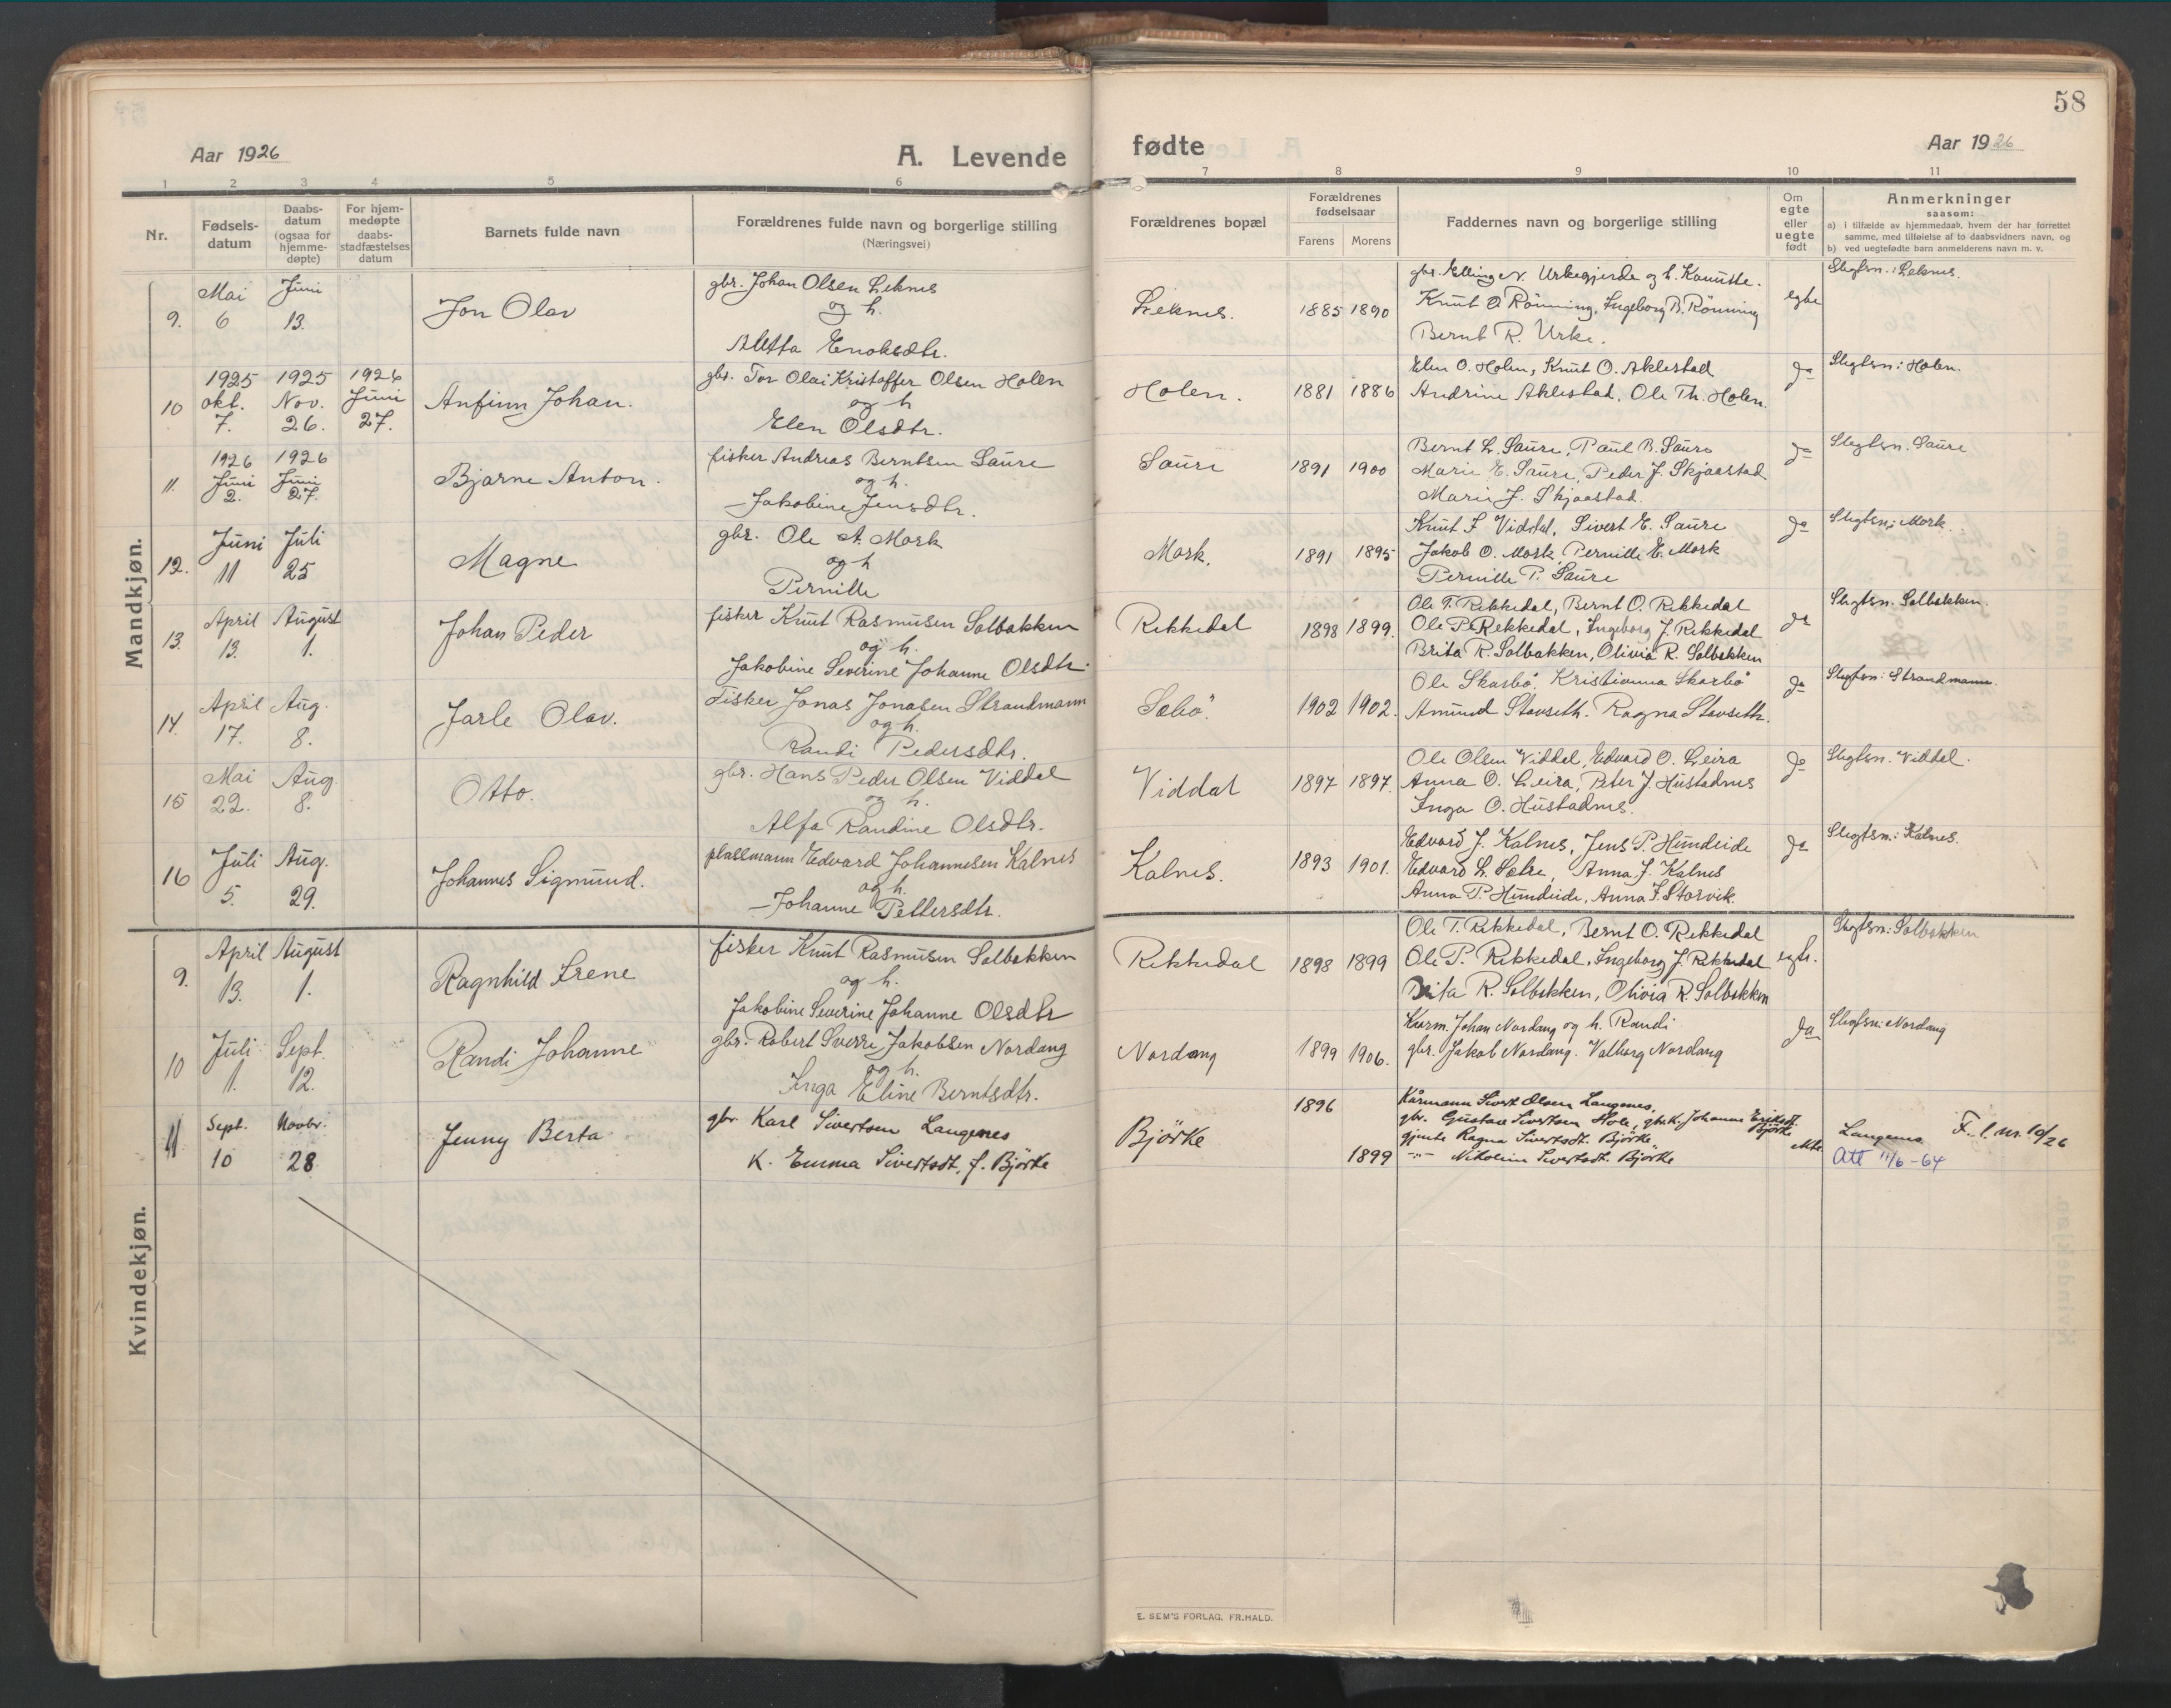 58
Aar 1926 A. Levende fødte Aar 1926
1 2 3 4 5 6 7 8 9 10 11
Nr.
Fødsels-
datum
Daabs-
datum
(ogsaa for
hjemme-
døpte)
For hjem-
medøpte
daabs-
stadfæstelses
datum
Barnets fulde navn
Forældrenes fulde navn og borgerlige stilling
(Næringsvei)
Forældrenes bopæl
Forældrenes
fødselsaar
Farens Morens
Faddernes navn og borgerlige stilling
Om
egte
eller
uegte
født
Anmerkninger
saasom:
a) i tilfælde av hjemmedaab, hvem der har forrettet
samme, med tilføielse af to daabsvidners navn, og
b) ved uegtefødte barn anmelderens navn m. v.
Mandkjøn.
9. Mai 6 Juni 13. Jon Olav
gbr. Johan Olsen Leknes
og h.
Aletta Enoksdtr.
Leknes. 1885 1890
gbr. Elling N. Urkegjerde og h. Kanutte.
Knut O Rönning, Ingeborg B. Rönning
Bernt R. Urke.
egte
Slegtsn.: Leknes.
10 1925 okt. 7. 1925 Nov. 26. 1926 Juni 27. Anfinn Johan.
gbr. Tor Olai Kristoffer Olsen Holen
og h
Elen Olsdtr.
Holen. 1881 1886
Elen O. Holen, Knut O. Aklestad
Andrine Aklestad, Ole Th. Holen.
Ja
Slegtsn: Holen.
11. 1926 Juni 2. 1926 Juni 27. Bjarne Anton.
fisker Andreas Berntsen Saure
og h.
Jakobine Jensdtr.
Saure 1891 1900
Bernt L. Saure, Paul B. Saure
Marie E. Saure, Peder J. Skjaastad
Marie J. Skjaastad.
Ja
Slegtsn. Saure
12. Juni 11 Juli 25 Magne
gbr. Ole A. Mork
og h
Pernille
Mork. 1891 1895
Knut J Viddal, Sivert E. Saure
Jakob O. Mork, Pernille E. Mork
Pernille P. Saure
Ja
Slegtsn; Mork.
13. April 13. August 1. Johan Peder
fisker Knut Rasmusen Solbakken
og h.
Jakobine Severine Johanne Olsdtr.
Rekkedal 1898 1899.
Ole T. Rekkedal, Bernt O. Rekkedal
Ole P. Rekkedal, Ingeborg J. Rekkedal
Brita R. Solbakken, Olivia R. Solbakken
Ja
Slegtsn. Solbakken.
14. April 17. Aug. 8. Jarle Olav.
Fisker Jonas Jonasen Strandmann
og h.
Randi Pedersdtr.
Sæbö. 1902 1902.
Ole Skarbö. Kristianna Skarbö
Amund Stavseth. Ragna Stavseth.
Ja
Slegtsn: Strandmann.
15 Mai 22. Aug. 8. Otto.
gbr. Hans Peder Olsen Viddal
og h.
Alfa Randine Olsdtr.
Viddal 1897 1897.
Ole Olsen Viddal, Edvard O. Leira
Anna O. Leira, Peter J. Hustadnes
Inga O. Hustadnes.
Ja
Slegtsn. Viddal.
16 Juli 5. Aug. 29. Johannes Sigmund.
plassmann Edvard Johannesen Kalnes
og h.
Johanne Pettersdtr.
Kalnes. 1893 1901.
Edvard J. Kalnes, Jens P. Hundeide
Edvard L. Sætre, Anna J. Kalnes
Anna P. Hundeide, Anna J. Storvik.
Ja
Slegtsn: Kalnes.
Kvindekjøn.
9. April 13. August 1. Ragnhild Irene
fisker Knut Rasmusen Solbakken
og h.
Jakobine Severine Johanne Olsdtr
Rekkedal 1898 1899
Ole T. Rekkedal, Bernt O. Rekkedal
Ole P. Rekkedal, Ingeborg J. Rekkedal
Brita R. Solbakken, Olivia R. Solbakken
egte.
Slegtsn: Solbakken
10 Juli 1. Sept. 12. Randi Johanne
gbr. Robert Sverre Jakobsen Nordang
og h.
Inga Eline Berntsdtr.
Nordang 1899 1906.
Kårm. Johan Nordang og h. Randi
gbr. Jakob Nordang. Valborg Nordang
Ja
Slegtsn: Nordang
11 Sept. 10 Novbr. 28 Jenny Berta
gbr Karl Sivertsen Langenes
K. Emma Sivertsdt. f. Björke
Björke 1896 1899
Kårmann Sivert Olsen Langenes,
gbr. Gustav Sivertsen Hole, gbrk. Johanne Eriksdt. Björke
gjente Ragna Sivertsdt. Björke,
-"- Nikoline Sivertsdt. Björke
ekte.
Langenes F. l. nr. 10/26
Att 11/6-64
E. SEM'S FORLAG, FR.HALD.